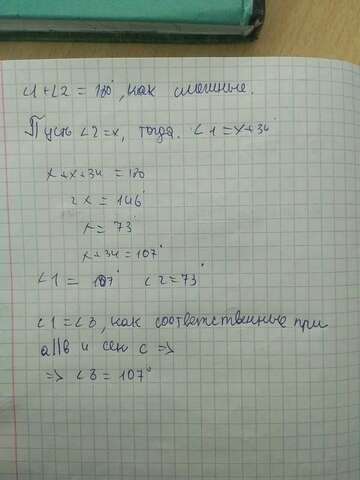 ∠1+∠2 = 180°, как смежные.
Пусть ∠2=x, тогда ∠1=x+34°
x+x+34 = 180
2x = 146°
x = 73°
x+34=107°
∠1 = 107° ∠2=73°
∠1=∠3, как соответственные при
a||b и сек c =>
=> ∠3 = 107°